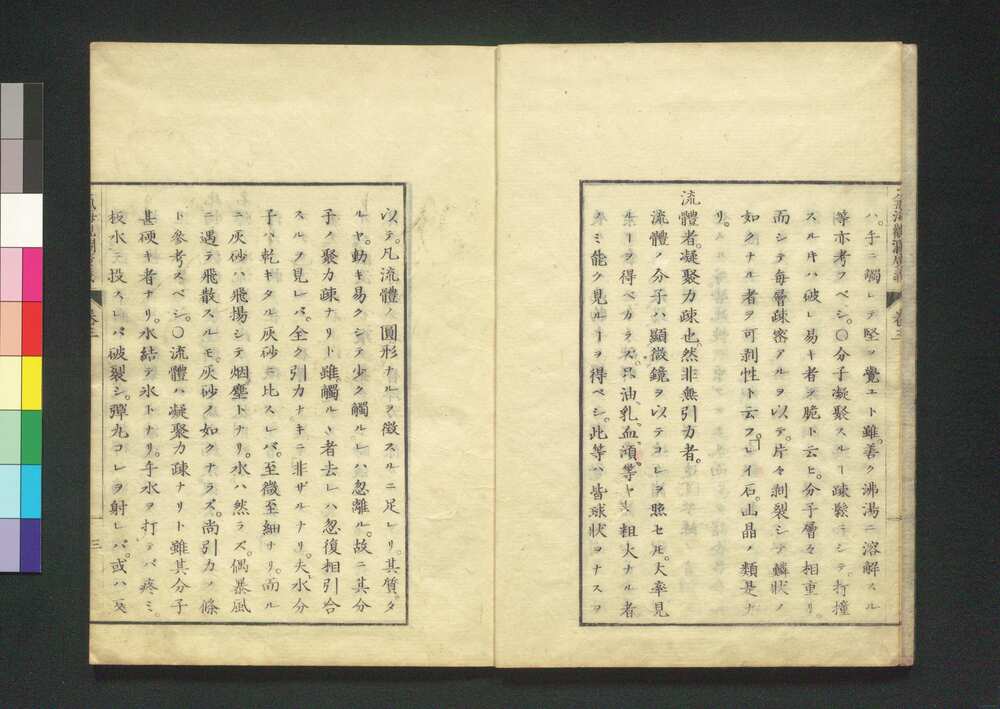 ハ。手ニ觸レテ堅ヲ覺エト雖。善ク沸湯ニ溶解スル
等亦考フベシ。〇分子凝聚スルヿ疎鬆ニシテ。打撞
スル𪜈ハ破レ易キ者ヲ脆ト云ヒ。分子層々相重リ。
而シテ每層疎密アルヲ以テ。片々剥裂シテ鱗狀ノ
如クナル者ヲ可剥性ト云フ。「レイ石。山晶ノ類是ナ
リ。
流體者。凝聚力疎也。然非無引力者。
流體ノ分子ハ顯微鏡ヲ以テコレヲ照セ𪜈。大率見
ルヿヲ得ベカラズ。只油。乳。血。澒。等ヤヽ粗大ナル者
ノミ能ク見ルヿヲ得ベシ。此等ハ皆球狀ヲナスヲ
以テ。凡流體ノ圓形ナルヲ徵スルニ足レリ。其質。タ
ルヤ。動キ易クシテ少ク觸ルレハ忽離ル。故ニ其分
子ノ聚力疎ナリト雖。觸ルヽ者去レハ忽復相引合
スルヲ見レバ。全ク引力ナキニ非ザルナリ。夫水分
子ハ乾キタル灰砂ニ比スレバ。至微至細ナリ。而ル
ニ灰砂ハ飛揚シテ烟塵トナリ。水ハ然ラズ。偶暴風
ニ遇テ飛散スルモ。灰砂ノ如クナラズ。尚引力ノ條
ト參考スベシ。〇流體ハ凝聚力疎ナリト雖其分子
甚硬キ者ナリ。水結テ氷トナリ。手水ヲ打テバ疼ミ。
板水ニ投スレバ破裂シ。彈丸コレヲ射レバ。或ハ反
卷三
三